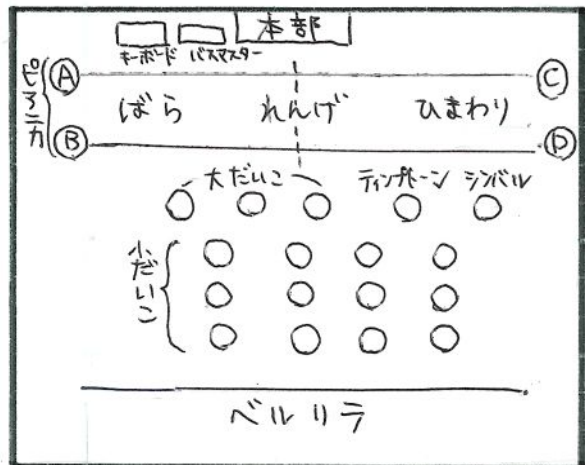 本部
キーボード バスマスター
Ⓐ Ⓒ
ピアニカ
ばら れんげ ひまわり
Ⓑ Ⓓ
大だいこ ティンプトーン シンバル
小だいこ
ベルリラ